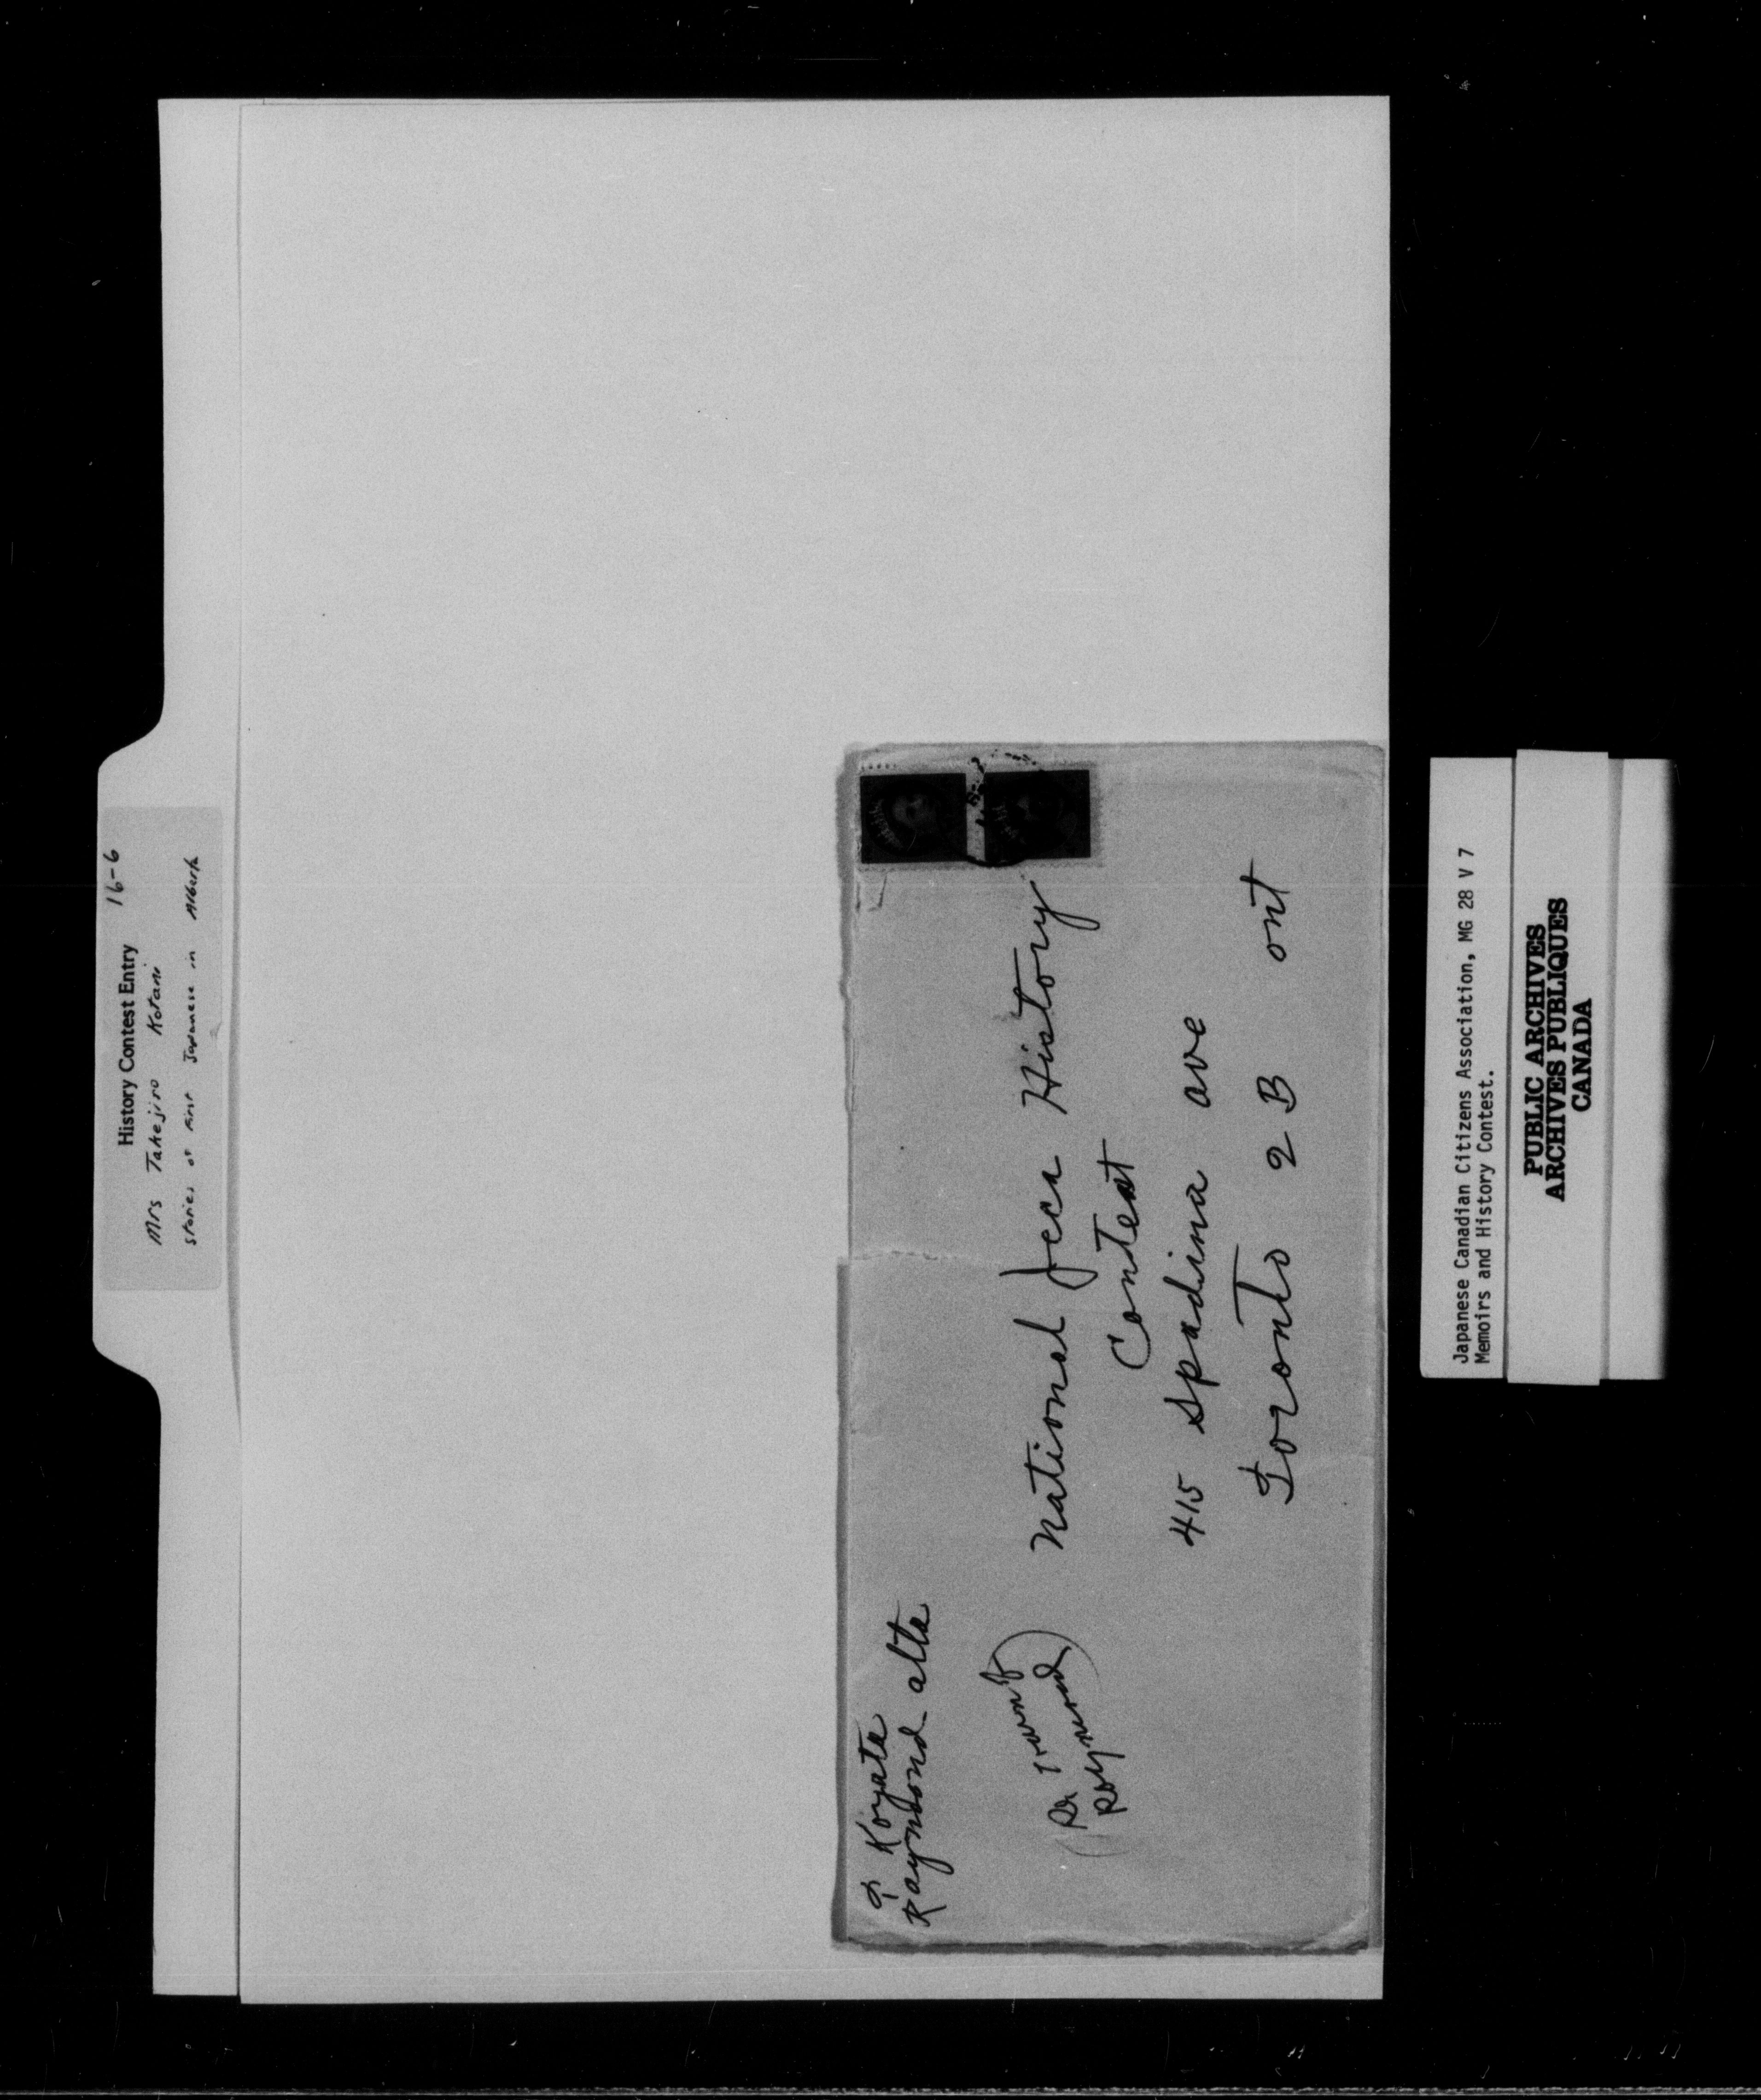 History Contest Entry 16-6
Mrs Takejiro Kotani
stories of First Japanese in Alberta
Koyata
Raymond alta
Raymond
National Jcca History
Contest
415 Spadina ave
Toronto 2B ont
Japanese Canadian Citizens Association, MG 28 V 7
Memoirs and History Contest.
PUBLIC ARCHIVES
ARCHIVES PUBLIQUES
CANADA